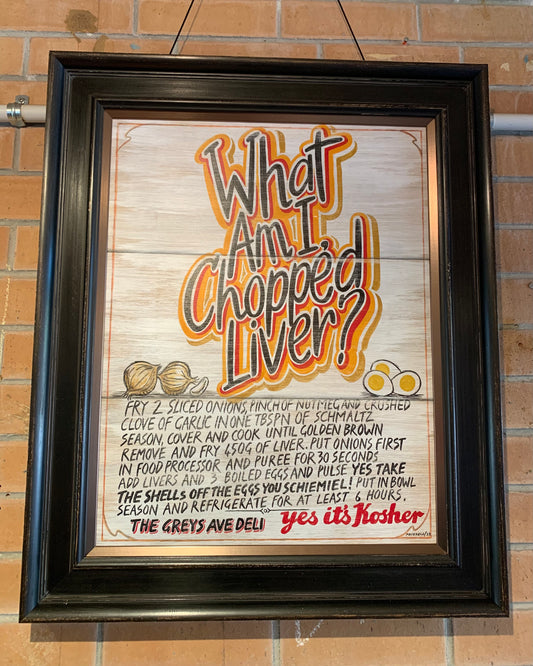 What
Am I,
Chopped
Liver?
FRY 2 SLICED ONIONS, PINCH OF NUTMEG AND CRUSHED
CLOVE OF GARLIC IN ONE TBSPN OF SCHMALTZ
SEASON, COVER AND COOK UNTIL GOLDEN BROWN
REMOVE AND FRY 450G OF LIVER. PUT ONIONS FIRST
IN FOOD PROCESSOR AND PUREE FOR 30 SECONDS
ADD LIVERS AND 3 BOILED EGGS AND PULSE YES TAKE
THE SHELLS OFF THE EGGS YOU SCHIEMIEL! PUT IN BOWL
SEASON AND REFRIGERATE FOR AT LEAST 6 HOURS.
THE GREYS AVE DELI yes it's Kosher